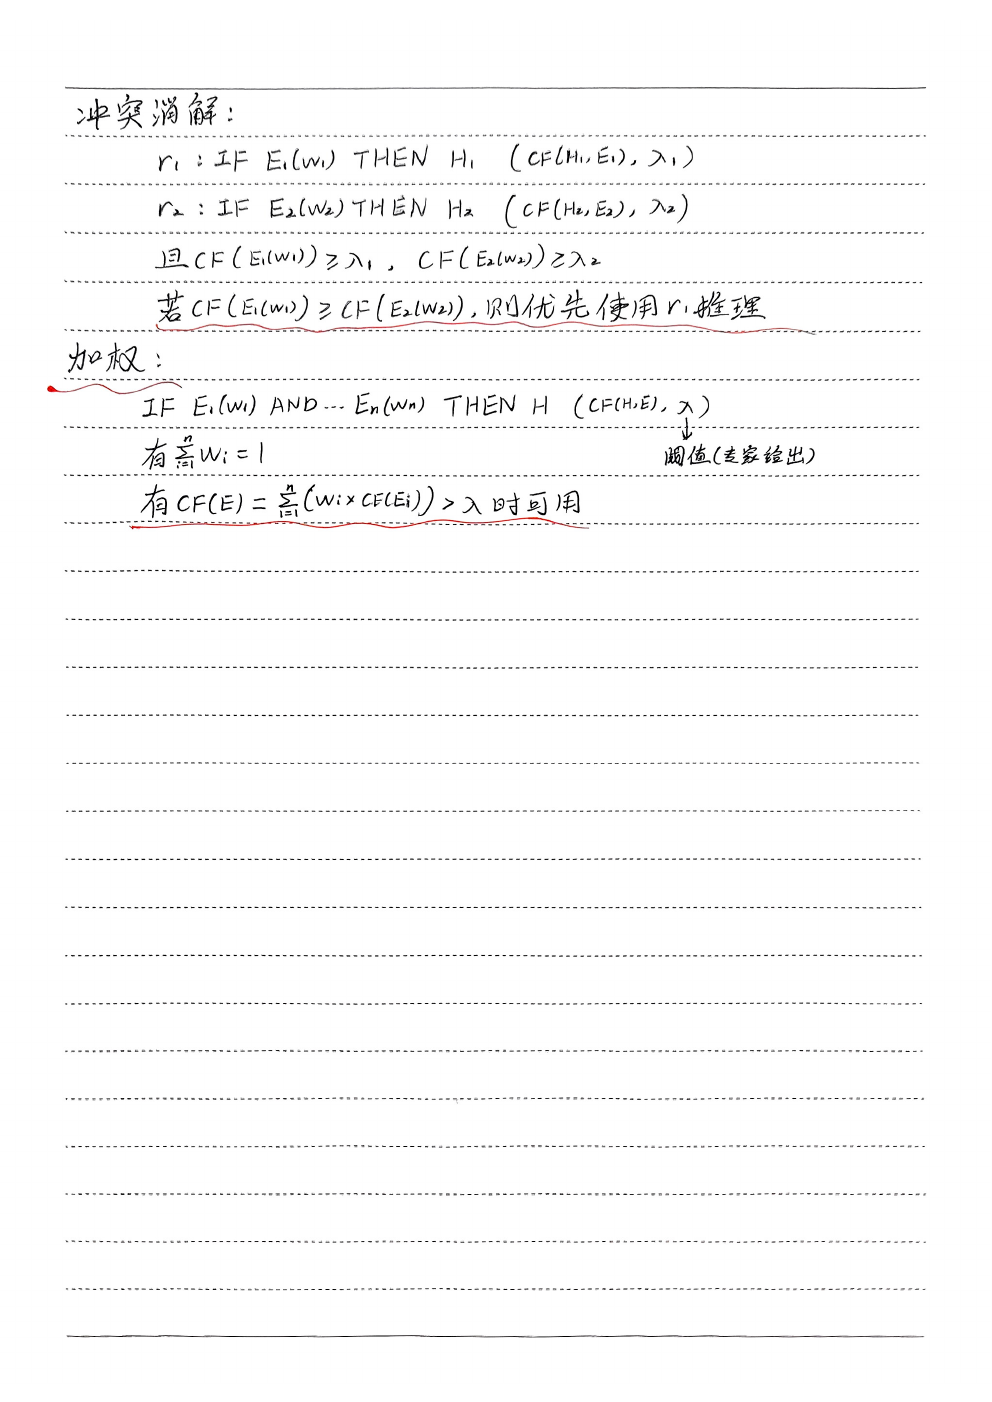 冲突消解:
r₁:IF E₁(w₁) THEN H₁ (CF(H₁,E₁), λ₁)
r₂:IF E₂(W₂) THEN H₂ (CF(H₂,E₂), λ₂)
且CF(E₁(w₁))≥λ₁, CF(E₂(w₂))≥λ₂
若CF(E₁(w₁))≥CF(E₂(W₂)),则优先使用r₁推理
加权:
IF E₁(w₁) AND…Eₙ(wₙ) THEN H (CF(H,E), λ)
↓
有∑ⁿᵢ₌₁Wᵢ=1 阈值(专家给出)
有CF(E)=∑ⁿᵢ₌₁(Wᵢ×CF(Eᵢ))>λ时可用